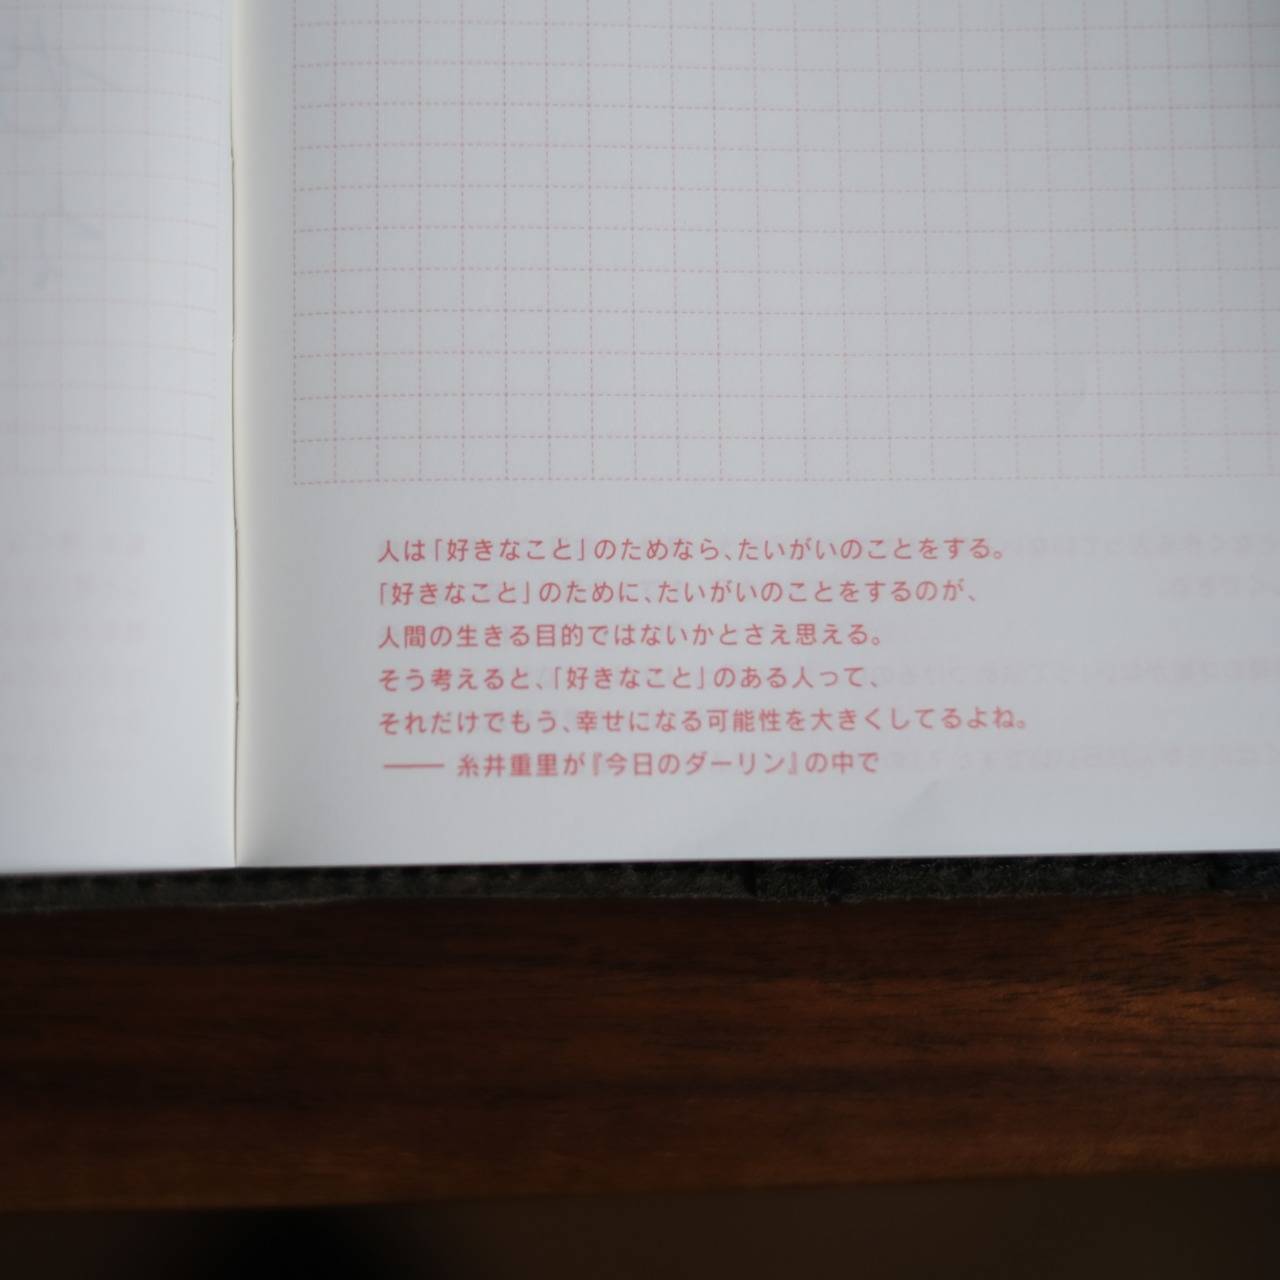 人は「好きなこと」のためなら、たいがいのことをする。
「好きなこと」のために、たいがいのことをするのが、
人間の生きる目的ではないかとさえ思える。
そう考えると、「好きなこと」のある人って、
それだけでもう、幸せになる可能性を大きくしてるよね。
── 糸井重里が『今日のダーリン』の中で